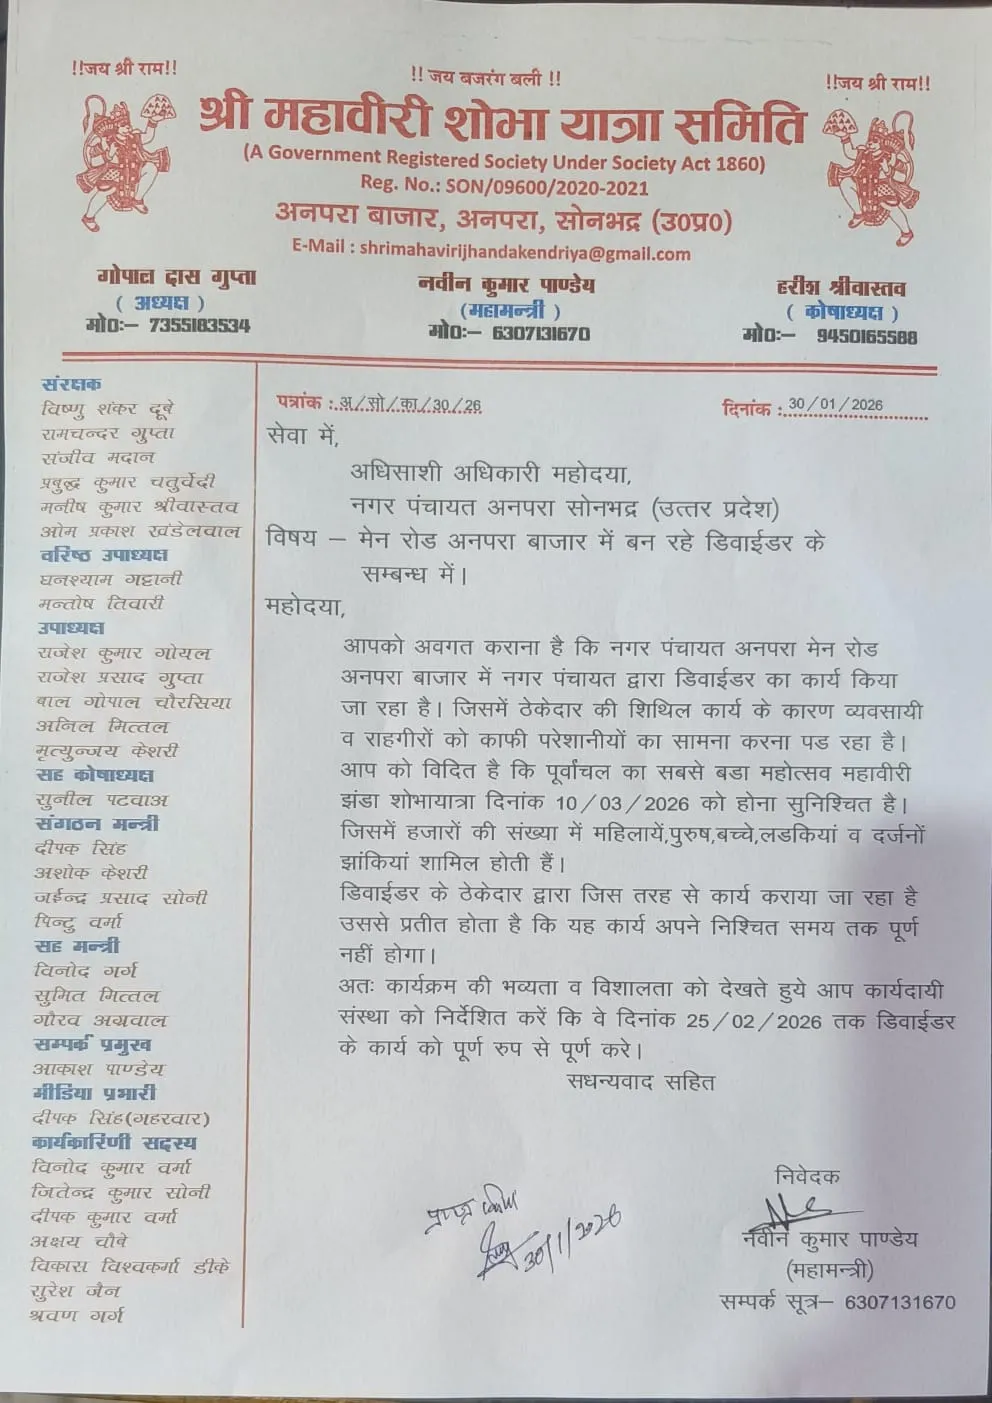 !!जय श्री राम!!
!! जय बजरंग बली !!
!!जय श्री राम!!
श्री महावीरी शोभा यात्रा समिति
(A Government Registered Society Under Society Act 1860)
Reg. No.: SON/09600/2020-2021
अनपरा बाजार, अनपरा, सोनभद्र (उ0प्र0)
E-Mail : shrimahavirijhandakendriya@gmail.com
गोपाल दास गुप्ता
( अध्यक्ष )
मो0:– 7355183534
नवीन कुमार पाण्डेय
(महामन्त्री )
मो0:– 6307131670
हरीश श्रीवास्तव
( कोषाध्यक्ष )
मो0:– 9450165588
संरक्षक
विष्णु शंकर दूबे
रामचन्दर गुप्ता
संजीव मदान
प्रबुद्ध कुमार चतुर्वेदी
मनीष कुमार श्रीवास्तव
ओम प्रकाश खंडेलवाल
वरिष्ठ उपाध्यक्ष
घनश्याम गट्टानी
मन्तोष तिवारी
उपाध्यक्ष
राजेश कुमार गोयल
राजेश प्रसाद गुप्ता
बाल गोपाल चौरसिया
अनिल मित्तल
मृत्युन्जय केशरी
सह कोषाध्यक्ष
सुनील पटवाअ
संगठन मन्त्री
दीपक सिंह
अशोक केशरी
जईन्द्र प्रसाद सोनी
पिन्टु वर्मा
सह मन्त्री
विनोद गर्ग
सुमित मित्तल
गौरव अग्रवाल
सम्पर्क प्रमुख
आकाश पाण्डेय
मीडिया प्रभारी
दीपक सिंह(गहरवार)
कार्यकारिणी सदस्य
विनोद कुमार वर्मा
जितेन्द्र कुमार सोनी
दीपक कुमार वर्मा
अक्षय चौबे
विकास विश्वकर्मा डीके
सुरेश जैन
श्रवण गर्ग
पत्रांक : अ/सो/का/30/26
दिनांक : 30/01/2026
सेवा में,
अधिसाशी अधिकारी महोदया,
नगर पंचायत अनपरा सोनभद्र (उत्तर प्रदेश)
विषय – मेन रोड अनपरा बाजार में बन रहे डिवाईडर के
सम्बन्ध में।
महोदया,
आपको अवगत कराना है कि नगर पंचायत अनपरा मेन रोड
अनपरा बाजार में नगर पंचायत द्वारा डिवाईडर का कार्य किया
जा रहा है। जिसमें ठेकेदार की शिथिल कार्य के कारण व्यवसायी
व राहगीरों को काफी परेशानीयों का सामना करना पड रहा है।
आप को विदित है कि पूर्वांचल का सबसे बडा महोत्सव महावीरी
झंडा शोभायात्रा दिनांक 10/03/2026 को होना सुनिश्चित है।
जिसमें हजारों की संख्या में महिलायें,पुरुष,बच्चे,लडकियां व दर्जनों
झांकियां शामिल होती हैं।
डिवाईडर के ठेकेदार द्वारा जिस तरह से कार्य कराया जा रहा है
उससे प्रतीत होता है कि यह कार्य अपने निश्चित समय तक पूर्ण
नहीं होगा।
अतः कार्यक्रम की भव्यता व विशालता को देखते हुये आप कार्यदायी
संस्था को निर्देशित करें कि वे दिनांक 25/02/2026 तक डिवाईडर
के कार्य को पूर्ण रुप से पूर्ण करे।
सधन्यवाद सहित
निवेदक
नवीन कुमार पाण्डेय
(महामन्त्री)
सम्पर्क सूत्र– 6307131670
30/1/2026